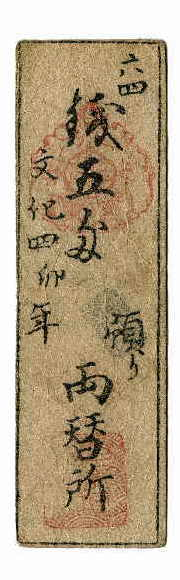 六四
銭五匁
預り
両替所
文化四卯年